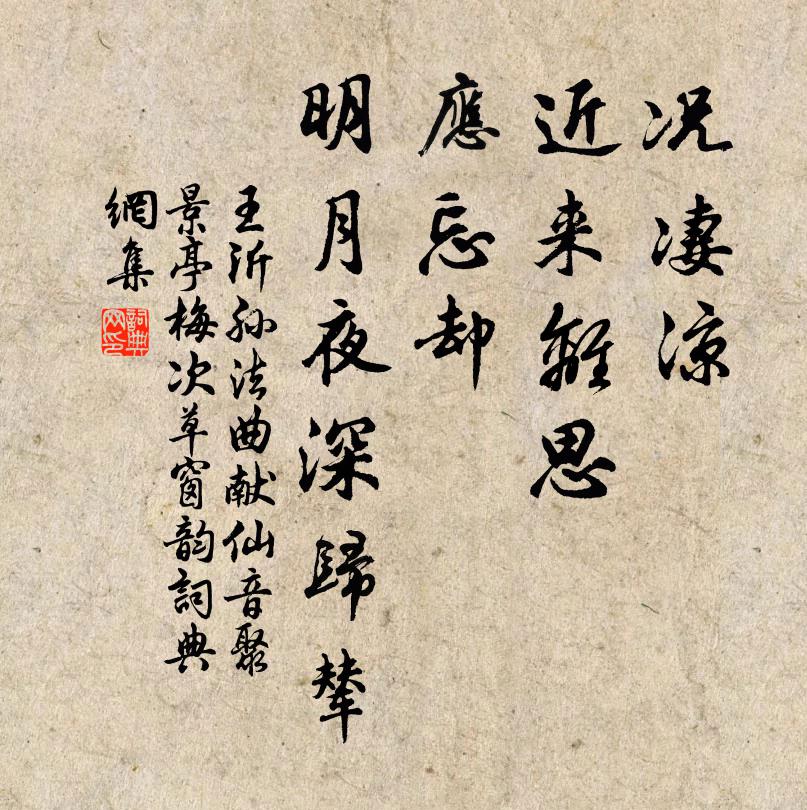 况凄凉
近来離思
應忘却
明月夜深歸輦
王沂孙法曲献仙音聚
景亭梅次草窗韵詞典
網集